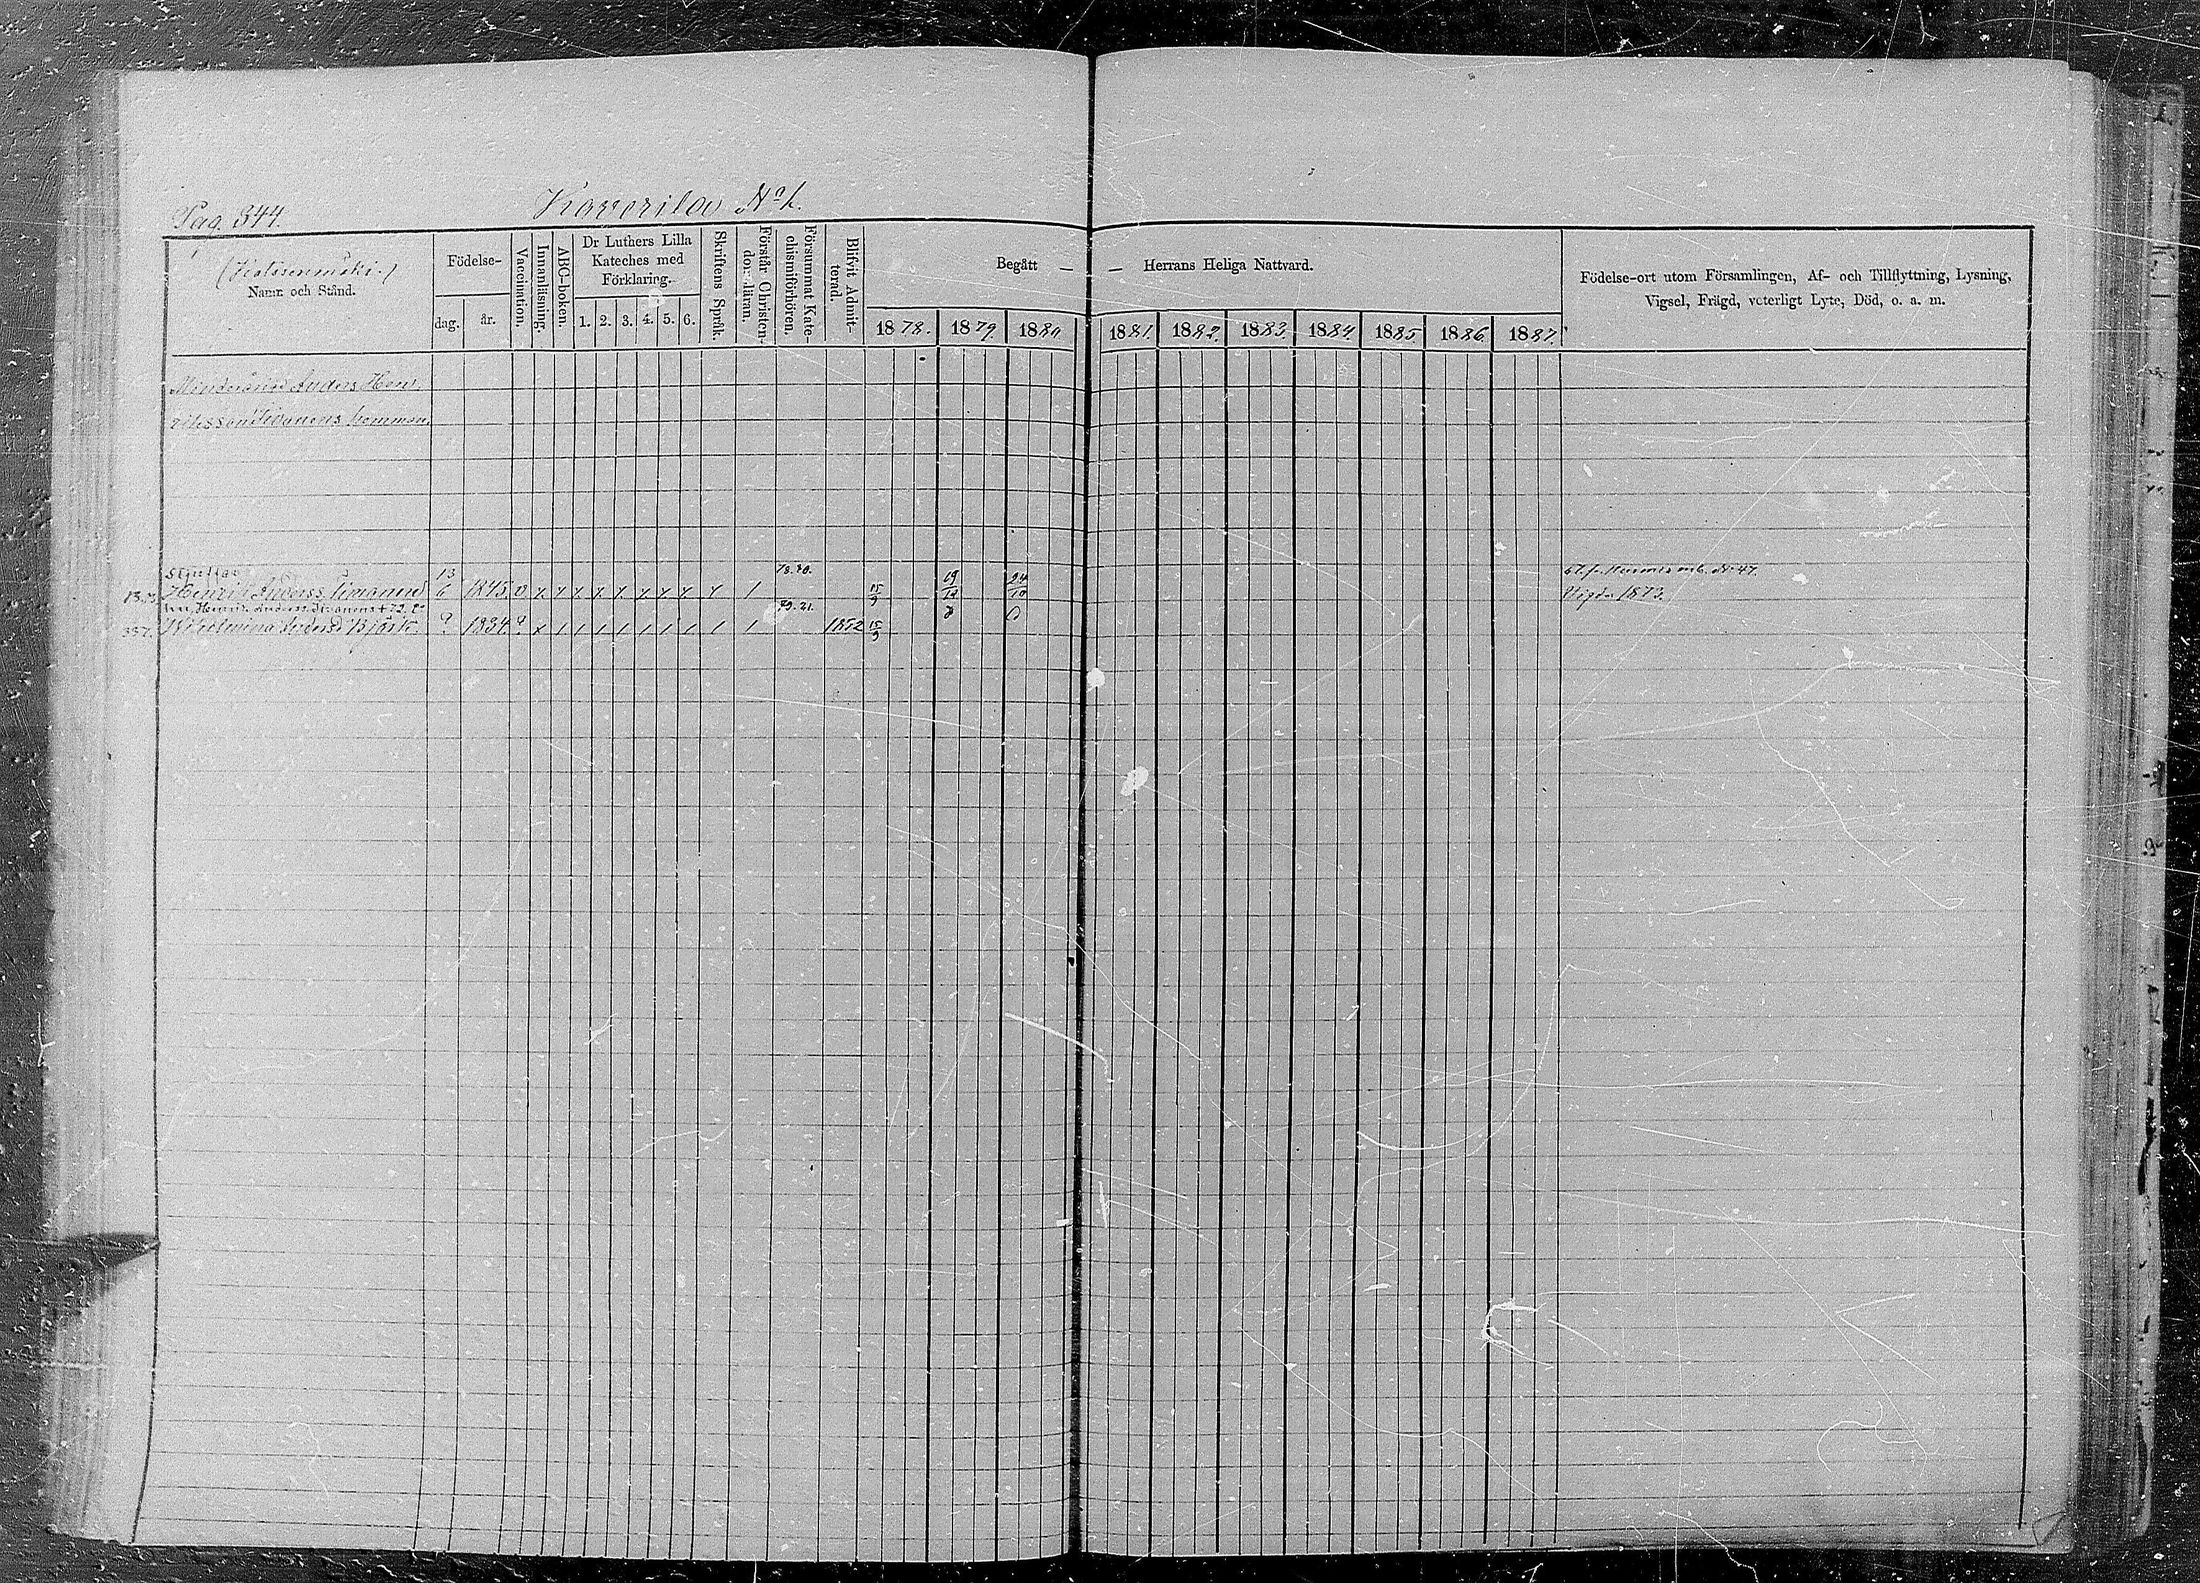 Pag. 344.
Kaverila No 1.
(Kolösenmäki.)
Namn och Stånd.
Födelse-
dag.
år.
Vaccination.
Innanläsning.
ABC-boken.
Dr Luthers Lilla
Kateches med
Förklaring.
1. 2. 3. 4. 5. 6.
Skriftens Språk.
Förstår Christen-
domsläran.
Försummat Kate-
chismiförhören.
Blifvit Admit-
terad.
Begått — — Herrans Heliga Nattvard.
1878. 1879. 1880 1881. 1882. 1883. 1884. 1885 1886. 1887.
Födelse-ort utom Församlingen, Af- och Tillflyttning, Lysning,
Vigsel, Frägd, veterligt Lyte, Död, o. a. m.
Minderårige Anders Hen-
hemman.
13 78.80. 19 24
Henrik Anderss. Simonen 6 1845. 15/9 12 10
Vigde 1873.
79.21.
337. Wilhelmina Andersd. Björk. ? 1834. ? 1852 15/9